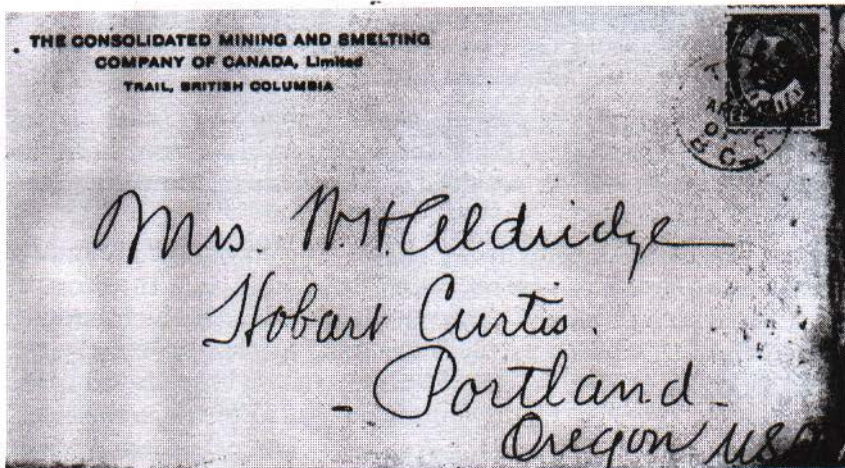 THE CONSOLIDATED MINING AND SMELTING
COMPANY OF CANADA, Limited
TRAIL, BRITISH COLUMBIA
Mrs. W.H. Aldridge
Hobart Curtis.
- Portland -
Oregon USA